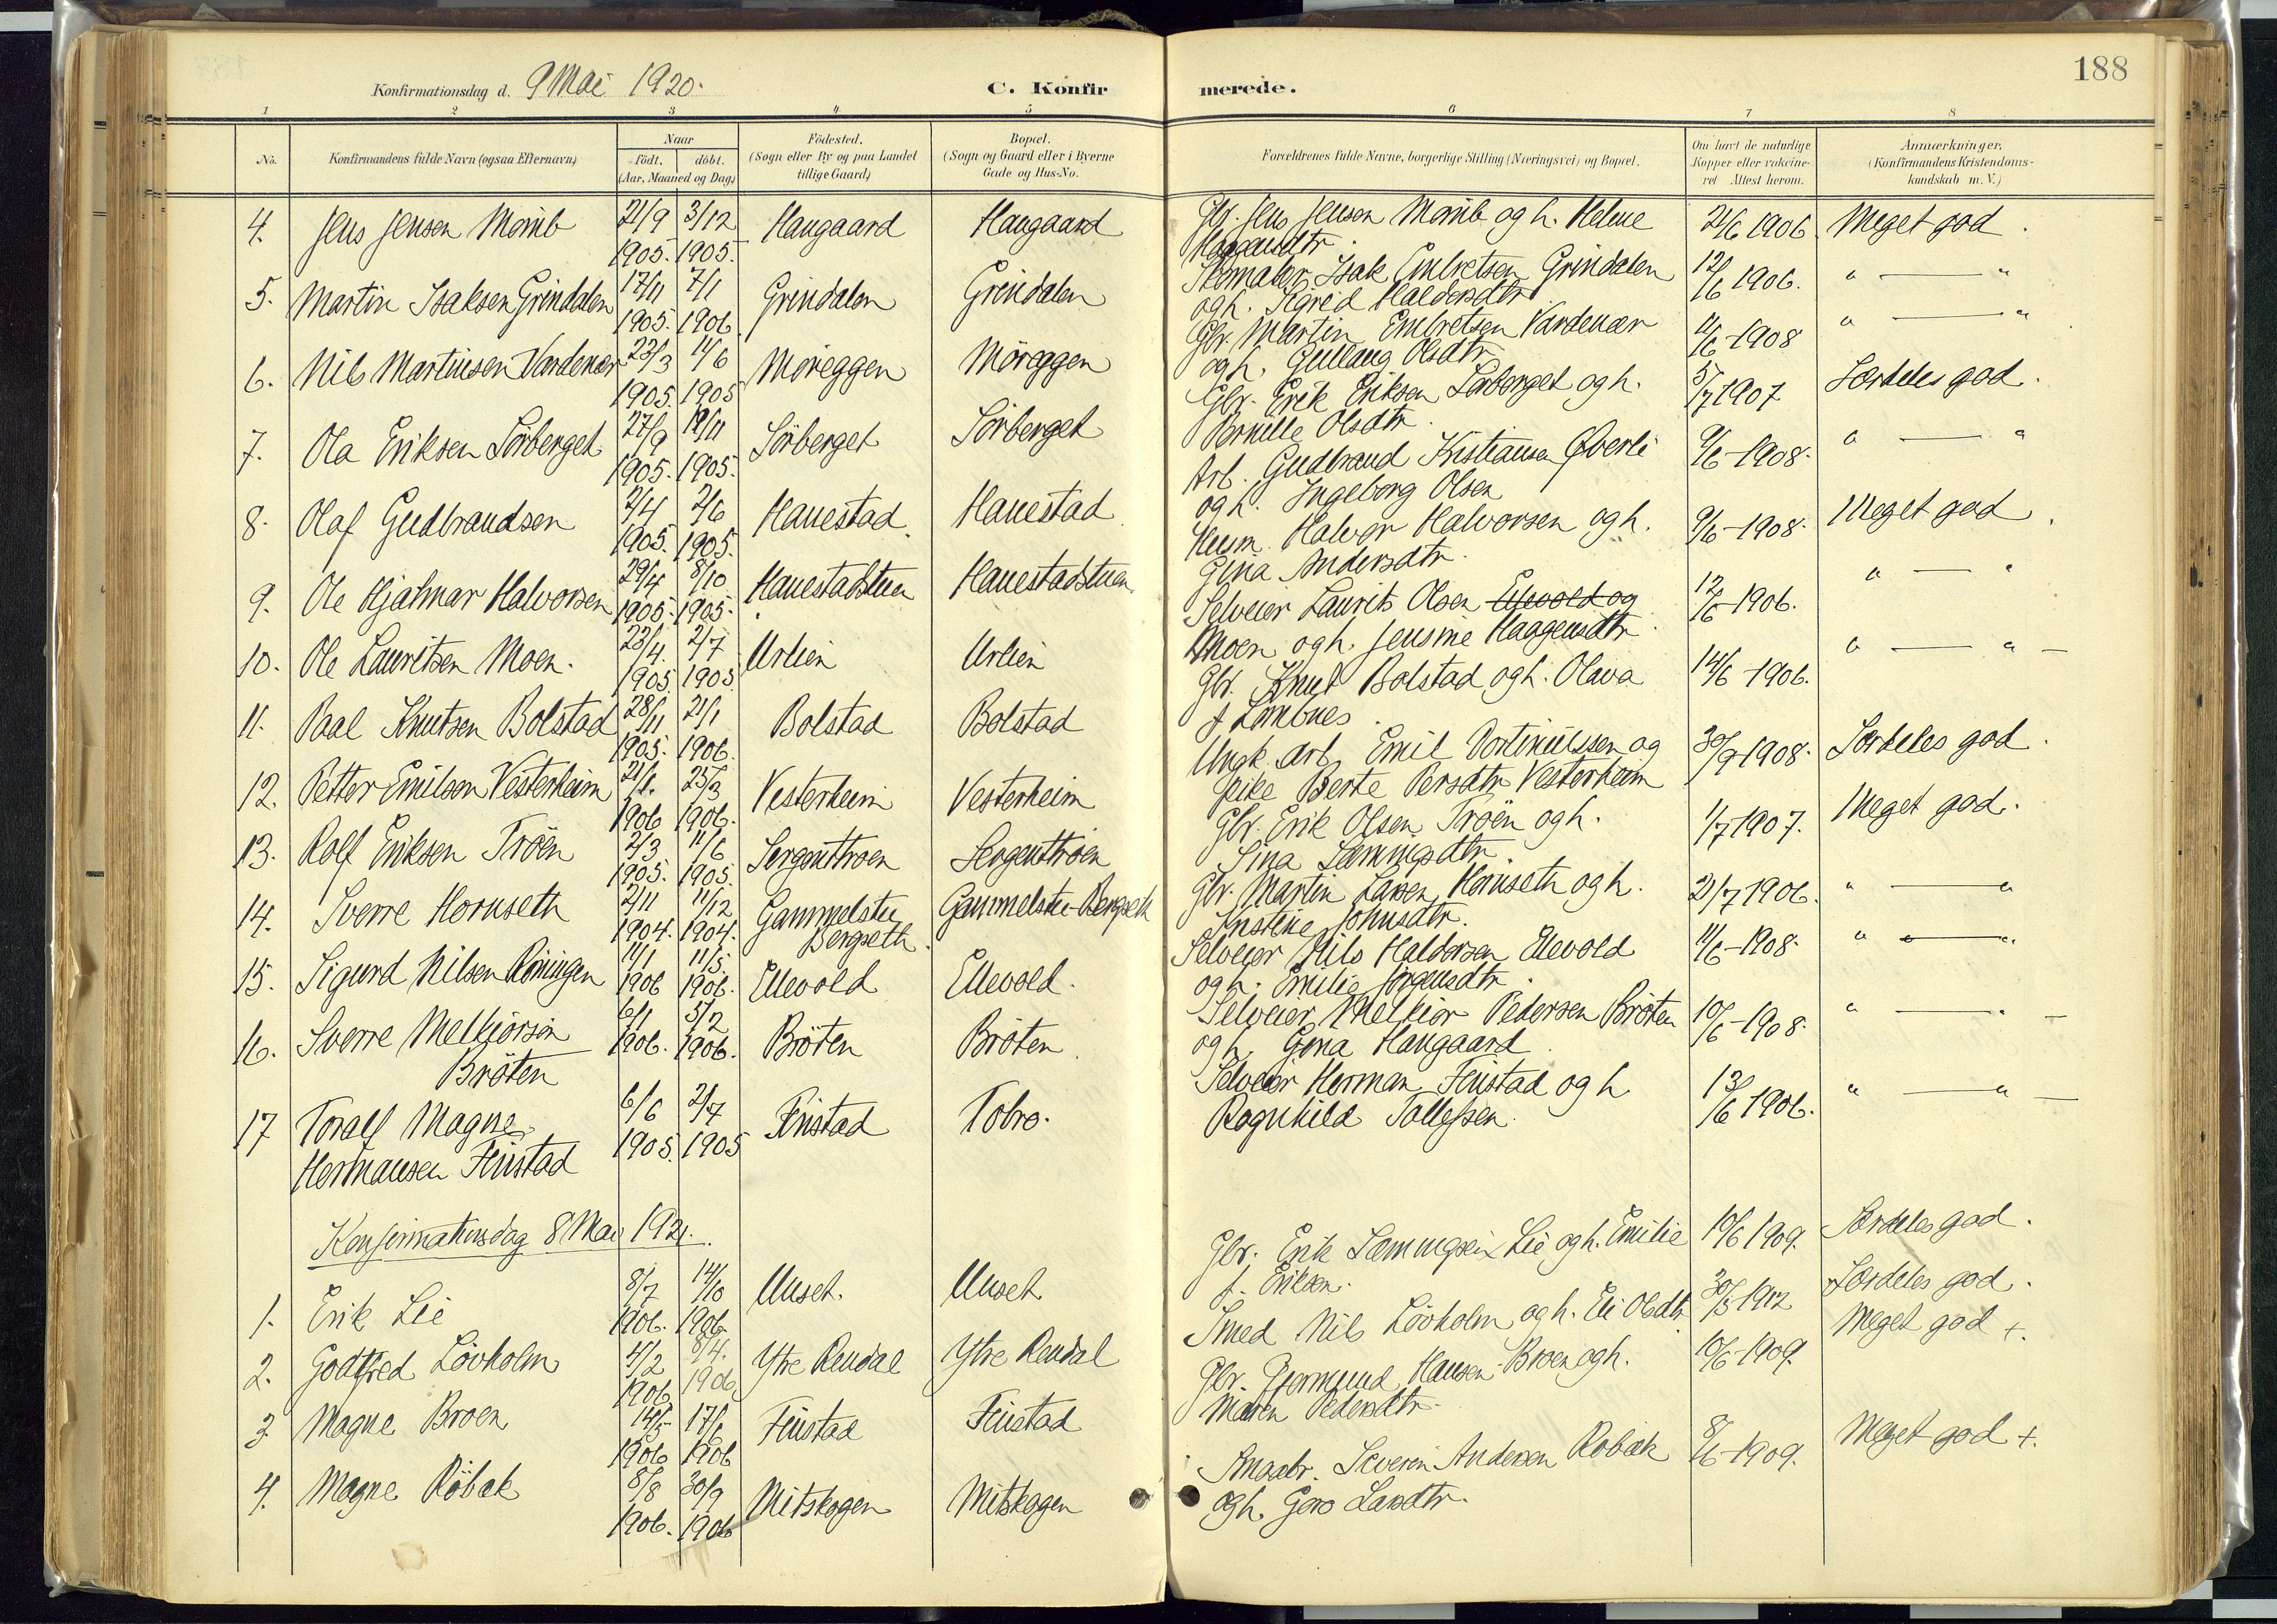 188
Konfirmationsdag d. 9 Mai 1920.
C. Konfirmerede.
1 2 3 4 5 6 7 8
No. Konfirmandens fulde Navn (ogsaa Efternavn) Naar født. døbt. (Aar, Maaned og Dag) Födested. (Sogn eller By og paa Landet tillige Gaard) Bopæl. (Sogn og Gaard eller i Byerne Gade og Hus-No. Forældrenes fulde Navne, borgerlige Stilling (Næringsvei) og Bopæl. Om havt de naturlige Kopper eller vakcineret Attest herom. Anmærkninger. (Konfirmandens Kristendomskundskab m. V.)
4. Jens Jensen Momb 21/9 1905. 3/12 1905. Haugaard Haugaard Gbr. Jens Jensen Momb og h. Helene 21/6 1906 Meget god.
5. Martin Isaksen Grindalen 17/11 1905. 7/1 1906 Grindalen Grindalen Skomaker Isak Embretsen Grindalen og h. Sigrid Haldorsdtr 12/6 1906. " — "
6. Nils Martinsen Vardenær 23/3 1905. 14/6 1905 Moreggen Möreggen Gbr. Martin Embretsen Vardenær og h. Gullaug Olsdtr 11/6-1908 " — "
7. Ola Eriksen Sörberget 27/9 1905. 12/11 1905. Sörberget Sörberget Gbr. Erik Eriksen Sörberget og h. Pernille Olsdtr. 5/7 1907 Særdeles god.
8. Olaf Gudbrandsen 2/4 1905. 2/6 1905. Hanestad Hanestad Arb. Gudbrand Kristiansen Øverli og h. Ingeborg Olsen 9/6-1908. " — "
9. Ole Hjalmar Halvorsen 29/4 1905. 8/10 1905. Hanestadstuen Hanestadstuen Husm. Halvor Halvorsen og h. Gina Andersdtr. 9/6-1908. Meget god.
10. Ole Lauritsen Moen. 23/4. 1905. 2/7 1905 Urlien Urlien Selveier Laurits Olsen Ellevold og Moen og h. Jensine Haagensdtr. 12/6-1906. " — "
11. Paal Knutsen Bolstad 28/11 1905. 21/1 1906. Bolstad Bolstad Gbr. Knut Bolstad og h. Olava f Lombnes. 14/6-1906. " — " —
12. Petter Emilsen Vesterheim 21/1. 1906 25/3 1906. Vesterheim Vesterheim Ungk. Arb. Emil og pike Berte Persdtr Vesterheim 30/9-1908. Særdeles god.
13. Rolf Eriksen Tröen 2/3 1905. 11/6 1905. Sergenttroen Sergenttroen Gbr. Erik Olsen Tröen og h. Sina Sæmingsdtr. 1/7 1907. Meget god.
14. Sverre Hornseth 2/11 1904. 11/12 1904. Gammelstu Bergseth. Gammelstu-Bergseth Gbr. Martin Larsen Hornseth og h. Kristine Johnsdtr. 21/7 1906. " — "
15. Sigurd Nilsen Röningen 14/1 1906 11/3. 1906. Ellevold Ellevold. Selveier Nils Haldorsen Elevold og h. Emilie Jörgensdtr. 11/6-1908. " — "
16. Sverre Melkiorsen Bröten 6/1 1906. 5/2 1906. Bröten Bröten Selveier Melkior Pedersen Bröten og h. Gina Haugaard 10/6-1908. " — " —
17 Toralf Magne Hermansen Finstad 6/6 1905. 2/7 1905 Finstad Tobro. Selveier Herman Finstad og h Ragnhild Tollefsen. 13/6 1906. " — " —
Konfirmationsdag 8 Mai 1921.
1. Erik Lie 8/7 1906. 14/10 1906. Unset. Unset Gbr. Erik Sæmingsen Lie og h. Emilie f. Eriksen. 10/6 1909. Særdeles god.
2. Godtfred Lövholm 4/2 1906 8/4. 1906 Ytre Rendal Ytre Rendal Smed Nils Lövholm og h. Eli Olsdtr 30/5-1912 Særdeles god.
3 Magne Broen 14/5 1906 17/6 1906 Finstad Finstad Gbr. Gjermund Hansen Broen og h. Maren Pedersdtr. 10/6-1909. Meget god +.
4. Magne Röbæk 8/8 1906. 30/9 1906 Mitskogen Mitskogen Smaabr. Severin Andersen Röbæk og h. Goro Larsdtr. 8/6-1909. Meget god +.